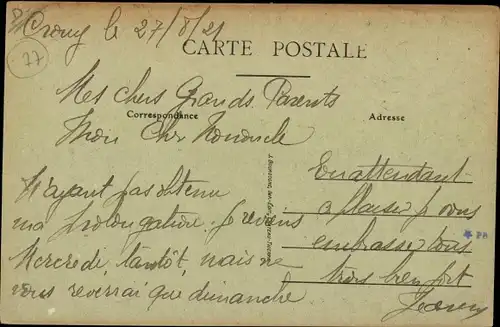 Crouy le 27/8/21
77
CARTE POSTALE
Mes chers Grands Parents
Correspondance
Adresse
Mon Cher Nononcle
N'ayant pas obtenu
ma prolongation je reviens
Mercredi tantôt, mais ne
vous reverrai que dimanche
En attendant
le plaisir je vous
embrasse tous
très bien fort